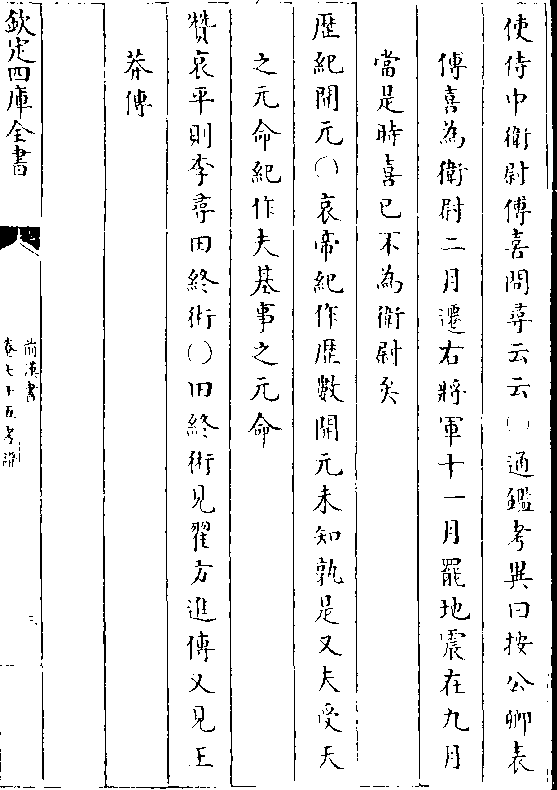 使侍中衛尉傅喜問尋云云○通鑑考異曰按公卿表
傅喜為衛尉二月遷右將軍十一月罷地震在九月
當是時喜已不為衛尉矣
歴紀開元○哀帝紀作歴數開元未知孰是又夫受天
之元命紀作夫基事之元命
贊哀平則李尋田終術○田終術見翟方進傳又見王
莽傳
欽定四庫全書
前漢書
卷七十五考證
三